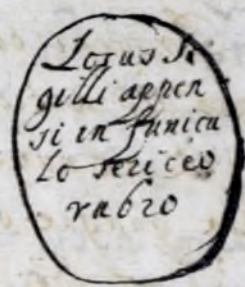 Locus Si
gilli appen
si in funicu
lo sericeo
rubro